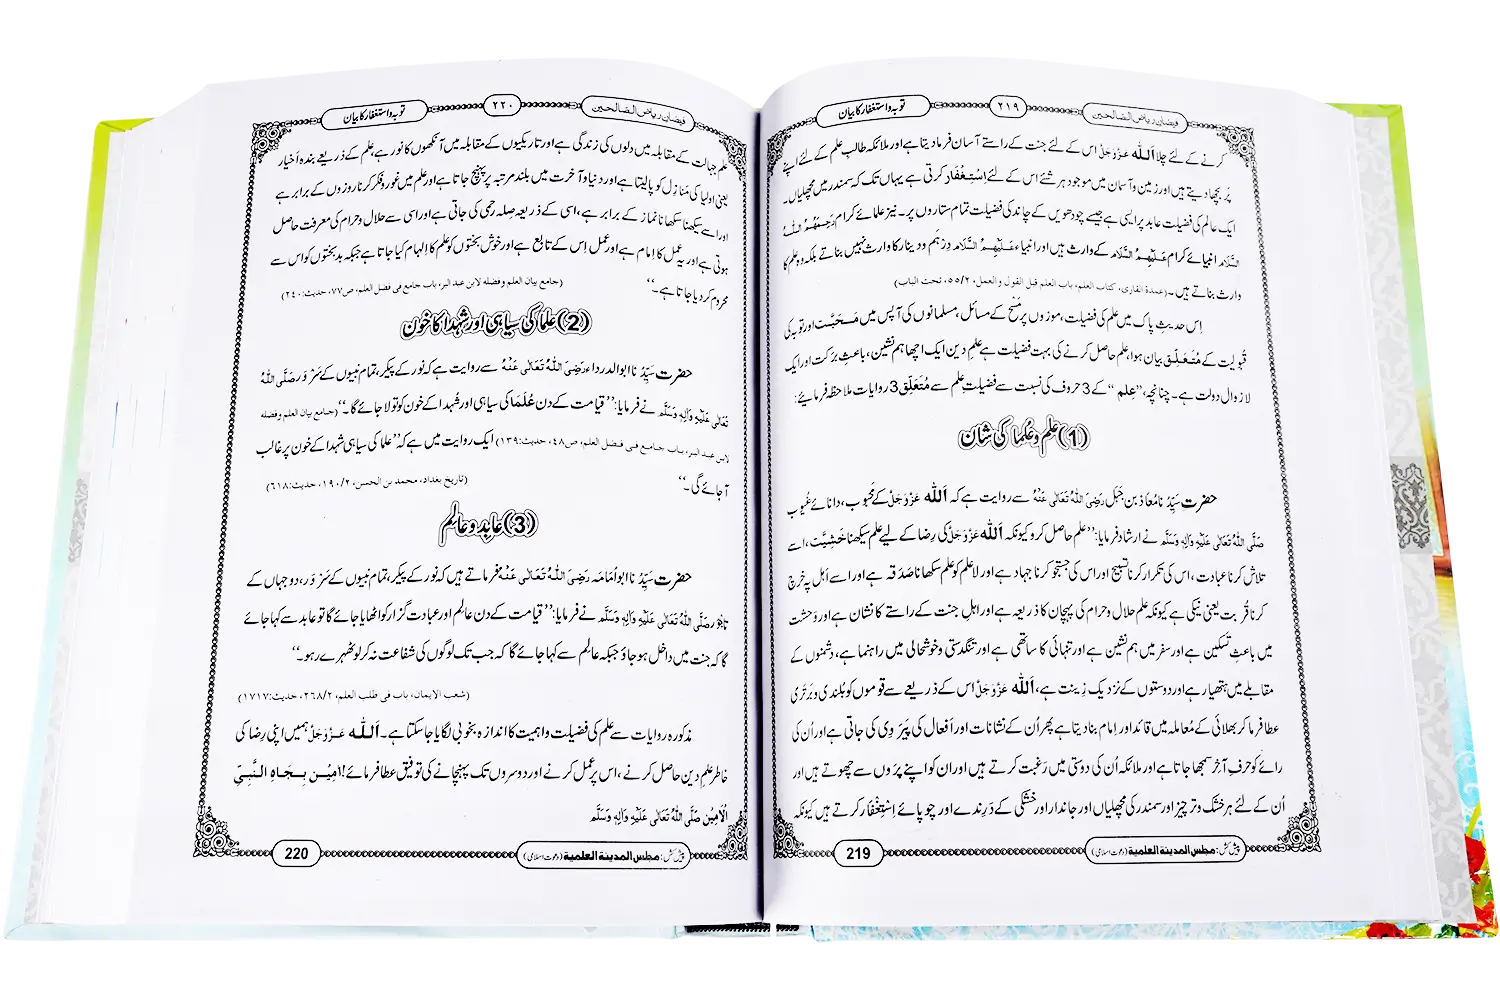 فیضانِ ریاض الصالحین
۲۱۹
توبہ و استغفار کا بیان
کرنے کے لئے چلا اَللہ عَزَّوَجَلَّ اس کے لئے جنت کے راستے آسان فرما دیتا ہے اور ملائکہ طالبِ علم کے لئے اپنے
پَر بچھا دیتے ہیں اور زمین و آسمان میں موجود ہر شئے اس کے لئے اِسْتِغْفَار کرتی ہے یہاں تک کہ سمندر میں مچھلیاں۔
ایک عالم کی فضیلت عابد پر ایسی ہے جیسے چودھویں کے چاند کی فضیلت تمام ستاروں پر۔ نیز علمائے کرام رَحِمَهُمُ اللّٰهُ
السَّلَام انبیائے کرام عَلَيْهِمُ السَّلَام کے وارث ہیں اور انبیاء عَلَيْهِمُ السَّلَام دِرْہَم و دینار کا وارث نہیں بناتے بلکہ وہ علم کا
وارث بناتے ہیں۔ (عمدة القاری، کتاب العلم، باب العلم قبل القول والعمل، ۵۵/۲، تحت الباب)
اِس حدیثِ پاک میں علم کی فضیلت، موزوں پر مَسْح کے مسائل، مسلمانوں کی آپس میں مَحَبَّت اور توبہ کی
قبولیت کے مُتَعَلِّق بیان ہوا، علم حاصل کرنے کی بہت فضیلت ہے علمِ دین ایک اچھا ہم نشین، باعثِ برکت اور ایک
لازوال دولت ہے۔ چنانچہ، ”عِلم“ کے 3 حروف کی نسبت سے فضیلتِ علم سے مُتَعَلِّق 3 روایات ملاحظہ فرمائیے:
(1) علم و عُلما کی شان
حضرت سَیِّدُنا مُعَاذ بن جَبَل رَضِیَ اللّٰہُ تَعَالٰی عَنْہُ سے روایت ہے کہ اَللہ عَزَّوَجَلَّ کے مَحبوب، دانائے غُیوب
صَلَّی اللّٰہُ تَعَالٰی عَلَیْہِ وَاٰلِہٖ وَسَلَّم نے ارشاد فرمایا: ”علم حاصل کرو کیونکہ اَللہ عَزَّوَجَلَّ کی رضا کے لیے علم سیکھنا خَشِیَّت، اسے
تلاش کرنا عبادت، اس کی تکرار کرنا تسبیح اور اس کی جستجو کرنا جہاد ہے اور لاعلم کو علم سکھانا صَدَقہ ہے اور اسے اَہل پہ خرچ
کرنا قُربت یعنی نیکی ہے کیونکہ علم حلال و حرام کی پہچان کا ذریعہ ہے اور اہلِ جنت کے راستے کا نشان ہے اور وَحشت
میں باعثِ تسکین ہے اور سفر میں ہم نشین ہے اور تنہائی کا ساتھی ہے اور تنگدستی و خوشحالی میں راہنما ہے، دشمنوں کے
مقابلے میں ہتھیار ہے اور دوستوں کے نزدیک زینت ہے، اَللہ عَزَّوَجَلَّ اس کے ذریعے سے قوموں کو بُلندی و برتری
عطا فرما کر بھلائی کے مُعاملہ میں قائد اور امام بنا دیتا ہے پھر اُن کے نشانات اور اَفعال کی پَیروی کی جاتی ہے اور اُن کی
رائے کو حرفِ آخر سمجھا جاتا ہے اور ملائکہ اُن کی دوستی میں رغبت کرتے ہیں اور ان کو اپنے پَروں سے چھوتے ہیں اور
اُن کے لئے ہر خشک و تر چیز اور سمندر کی مچھلیاں اور جاندار اور خشکی کے دَرندے اور چوپائے اِسْتِغْفَار کرتے ہیں کیونکہ
پیش کش: مجلس المدینۃ العلمیۃ (دعوت اسلامی)
219
فیضانِ ریاض الصالحین
۲۲۰
توبہ و استغفار کا بیان
علم جہالت کے مقابلہ میں دلوں کی زندگی ہے اور تاریکیوں کے مقابلہ میں آنکھوں کا نور ہے، علم کے ذریعے بندہ اَخیار
یعنی اولیا کی مَنَازِل کو پا لیتا ہے اور دنیا و آخرت میں بلند مرتبہ پر پہنچ جاتا ہے اور علم میں غور و فکر کرنا روزوں کے برابر ہے
اور اسے سیکھنا سکھانا نماز کے برابر ہے، اسی کے ذریعہ صلہ رحمی کی جاتی ہے اور اسی سے حلال و حرام کی معرفت حاصل
ہوتی ہے اور یہ عمل کا اِمام ہے اور عمل اِس کے تابع ہے اور خوش بختوں کو علم کا اِلہام کیا جاتا ہے جبکہ بدبختوں کو اس سے
محروم کر دیا جاتا ہے۔“ (جامع بیان العلم وفضله لابن عبد البر، باب جامع فی فضل العلم، ص۷۷، حدیث:۲۴۰)
(2) علما کی سیاہی اور شُہدا کا خون
حضرت سَیِّدُنا ابو الدرداء رَضِیَ اللّٰہُ تَعَالٰی عَنْہُ سے روایت ہے کہ نور کے پیکر، تمام نبیوں کے سَرْوَر صَلَّی اللّٰہُ
تَعَالٰی عَلَیْہِ وَاٰلِہٖ وَسَلَّم نے فرمایا: ”قیامت کے دن عُلَمَا کی سیاہی اور شُہدا کے خون کو تولا جائے گا۔“ (جامع بیان العلم وفضله
لابن عبد البر، باب جامع فی فضل العلم، ص۴۸، حدیث:۱۳۹) ایک روایت میں ہے کہ ”علما کی سیاہی شہدا کے خون پر غالب
آجائے گی۔“ (تاریخ بغداد، محمد بن الحسن، ۱۹۰/۲، حدیث:۶۱۸)
(3) عابِد و عالِم
حضرت سَیِّدُنا ابو اُمامَہ رَضِیَ اللّٰہُ تَعَالٰی عَنْہُ فرماتے ہیں کہ نور کے پیکر، تمام نبیوں کے سَرْوَر، دو جہاں کے
تاجور صَلَّی اللّٰہُ تَعَالٰی عَلَیْہِ وَاٰلِہٖ وَسَلَّم نے فرمایا: ”قیامت کے دن عالِم اور عبادت گزار کو اٹھایا جائے گا تو عابد سے کہا جائے
گا کہ جنت میں داخل ہو جاؤ جبکہ عالِم سے کہا جائے گا کہ جب تک لوگوں کی شفاعت نہ کر لو ٹھہرے رہو۔“
(شعب الایمان، باب فی طلب العلم، ۲۶۸/۲، حدیث:۱۷۱۷)
مذکورہ روایات سے علم کی فضیلت و اہمیت کا اندازہ بخوبی لگایا جا سکتا ہے۔ اَللہ عَزَّوَجَلَّ ہمیں اپنی رضا کی
خاطر علمِ دین حاصل کرنے، اس پر عمل کرنے اور دوسروں تک پہنچانے کی توفیق عطا فرمائے! اٰمِیْن بِجَاہِ النَّبِیِّ
الْاَمِیْن صَلَّی اللّٰہُ تَعَالٰی عَلَیْہِ وَاٰلِہٖ وَسَلَّم
پیش کش: مجلس المدینۃ العلمیۃ (دعوت اسلامی)
220